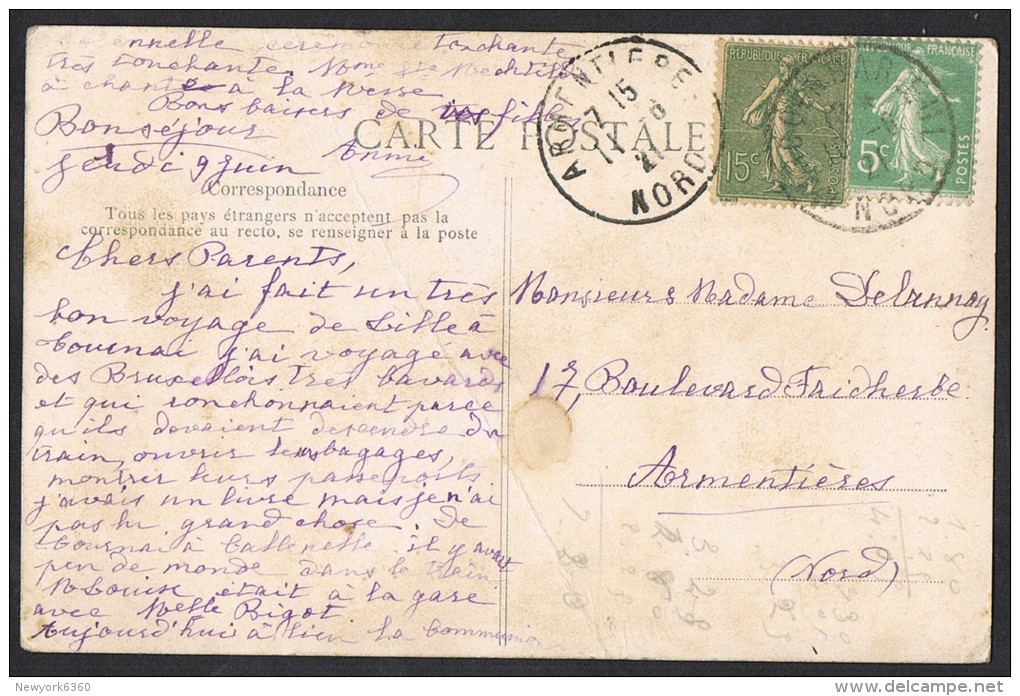 ennelle cérémonie touchante
très touchante. Mme Ste Mechtilde
a chanté à la Messe
Bons baisers de vos filles
Bonséjour
Jeudi 9 juin
CARTE POSTALE
Correspondance
Tous les pays étrangers n'acceptent pas la
correspondance au recto, se renseigner à la poste
Chers Parents,
j'ai fait un très
bon voyage de Lille à
Tournai j'ai voyagé avec
des Bruxellois très bavards
et qui ronchonnaient parce
qu'ils devaient descendre du
train, ouvrir leurs bagages,
montrer leurs passeports
j'avais un livre mais je n'ai
pas lu grand chose. De
Tournai à Callenelle il y avait
peu de monde dans le train
M Louise était à la gare
avec Melle Bigot
Aujourd'hui à lieu la Communion
ARMENTIERES
7 15
11 6
21
NORD
REPUBLIQUE FRANÇAISE
15c
POSTES
REPUBLIQUE FRANÇAISE
5c
POSTES
Monsieur & Madame Delannoy
17, Boulevard Faidherbe
Armentières
(Nord)
Newyork6360
delcampe.net